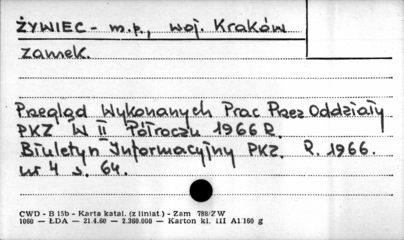 ŻYWIEC - m.p., woj. Kraków
zamek.
Pregląd Wykonanych Prac Przez Oddziały
PKZ W II Półroczu 1966 R.
Biuletyn Informacyjny PKZ. R. 1966.
nr 4 s. 64.
CWD - B 15b - Karta katal. (z liniat.) - Zam 788/ZW
1060 — ŁDA — 21.4.60 - 2.360.000 — Karton kl. III A1 160 g